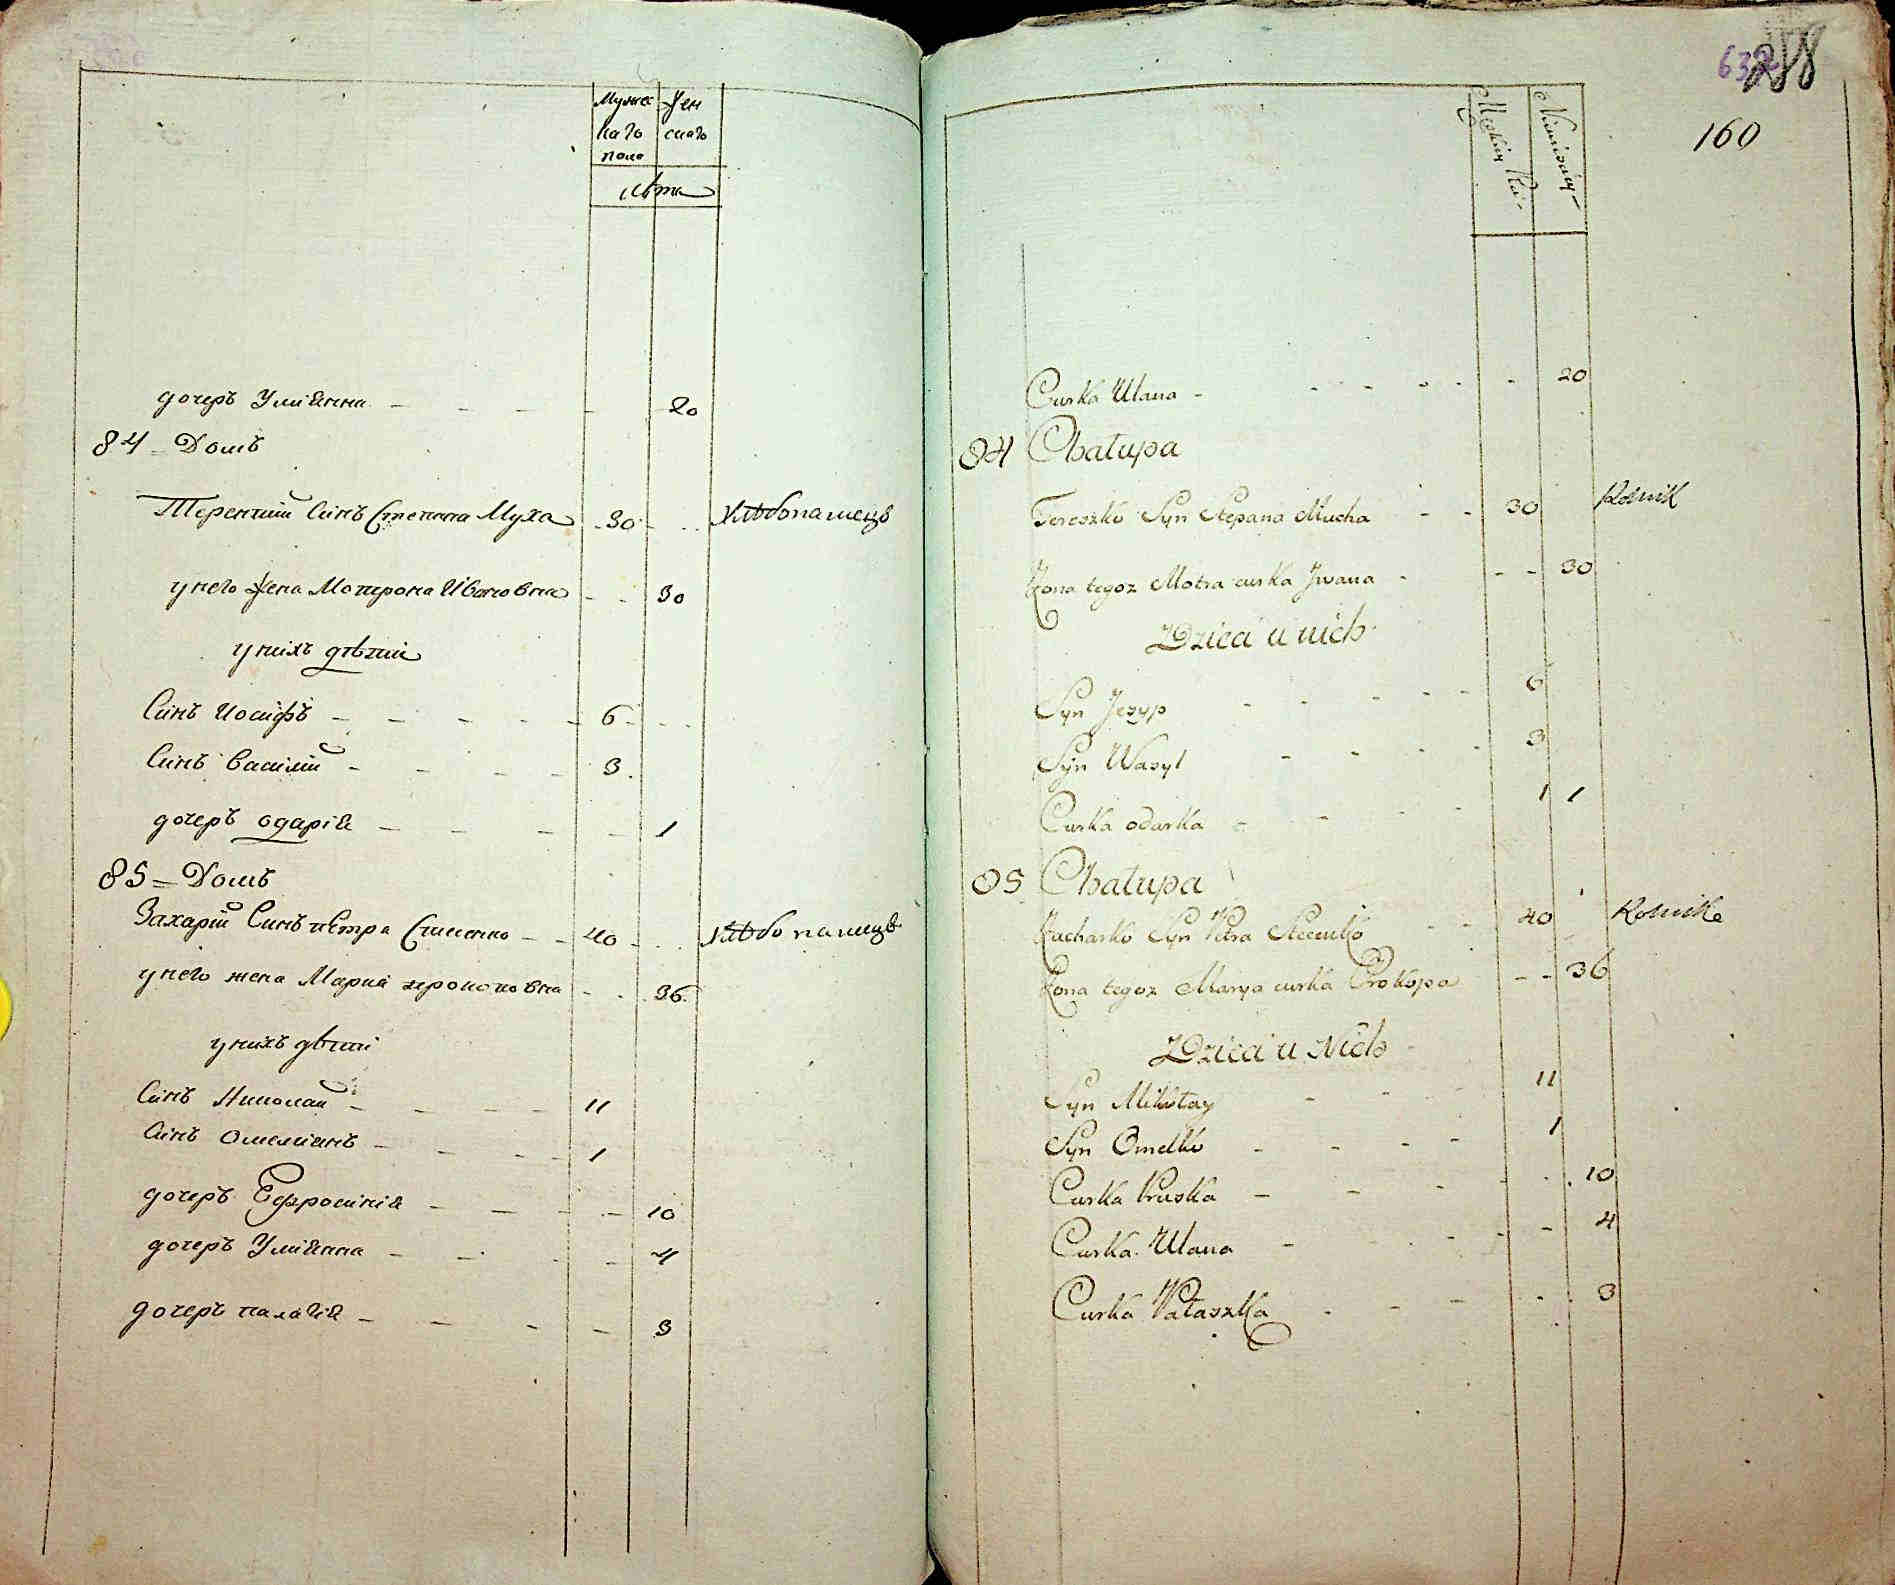 Мужес Жен
каго скаго
пола
лѣта
дочеръ Улиянна - - - - 20
84 = Домъ
Терентий Синъ Степана Муха - 30 - - - хлѣбопашецъ
у него жена Мотрона Ивановна - - 30
у нихъ дѣти
Синъ Иосифъ - - - - - 6 - - -
Синъ Василий - - - - 3.
дочеръ одария - - - - 1
85 = Домъ
Захарий Синъ петра Стеценко - - 40 - - - хлѣбопашецъ
у него жена Мария прокоповна - - - 36.
у нихъ дѣти
Синъ Николай - - - - 11
Синъ Омелианъ - - - - 1
дочеръ Ефросиния - - - - 10
дочеръ Улиянна - - - - 4
дочеръ палагия - - - - 3
288
160
Curka Ulana - - - - - - - 20
84 Chałupa
Tereszko Syn Stepana Mucha - - 30 Rolnik
Żona tegoz Motra curka Jwana - - - 30
Dzieci u nich
Syn Jezyp - - - - - 6
Syn Wasyl - - - - 3
Curka odarka - - - - 1 1
85 Chałupa
Zacharko Syn Petra Stecenko - - 40 Rolnik
Żona tegoz Marya curka Prokopa - - 36
Dzieci u Nich
Syn Mikołay - - - 11
Syn Omelko - - - - 1
Curka Pruska - - - - - 10
Curka Ulana - - - - - 4
Curka Pałaszka - - - - - 3